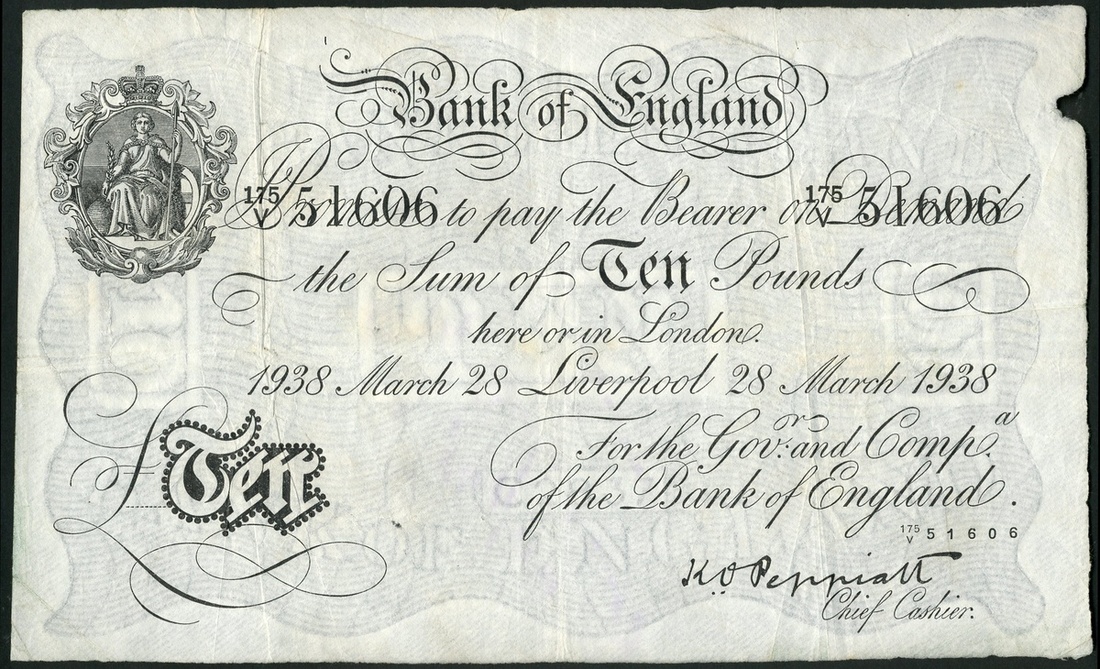 Bank of England
175/V 51606 175/V 51606
Promise to pay the Bearer on Demand
the Sum of Ten Pounds
here or in London.
1938 March 28 Liverpool 28 March 1938
For the Gov.r and Comp.a
of the Bank of England.
£ Ten
175/V 51606
K O Peppiatt
Chief Cashier.